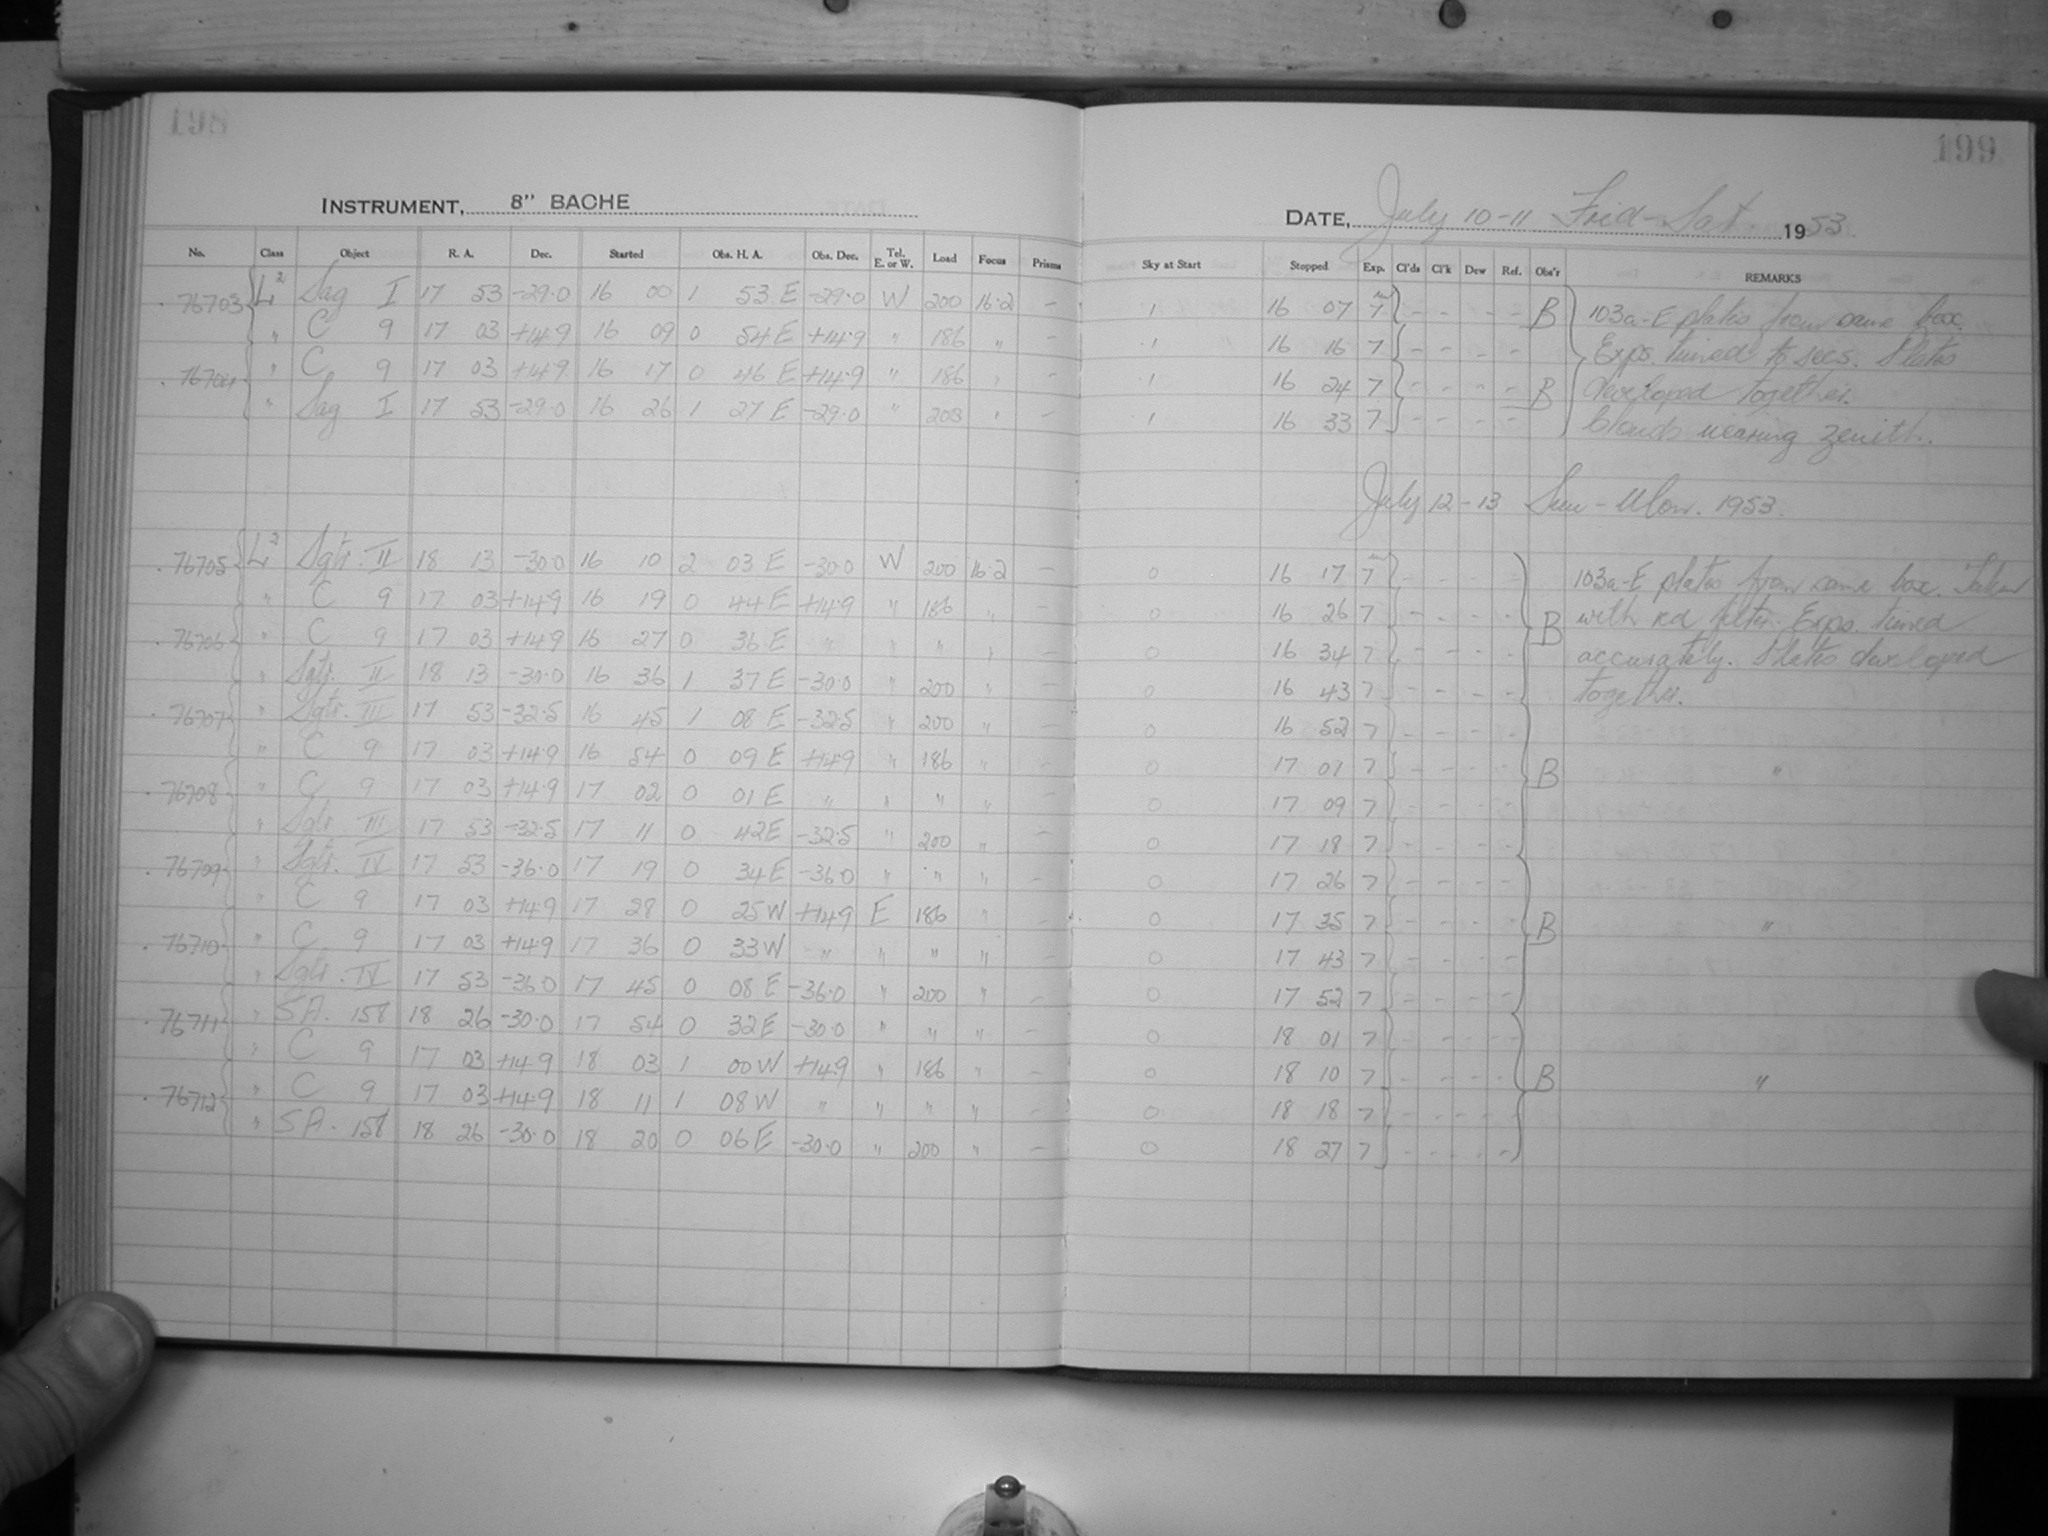 198
199
INSTRUMENT, 8" BACHE
DATE, July 10-11 Frid-Sat 1953.
No. Class Object R. A. Dec. Started Obs. H. A. Obs. Dec. Tel. E. or W. Load Focus Prisms Sky at Start Stopped Exp. Cl'ds Cl'k Dew Ref. Obs'r REMARKS
76703 L2 Sag I 17 53 -29.0 16 00 1 53 E -29.0 W 200 16.2 - 1 16 07 7m - - - - B 103a-E plates from same box.
" C 9 17 03 +14.9 16 09 0 54 E +14.9 " 186 " - 1 16 16 7 - - - - Exps. timed to secs. Plates
76704 " C 9 17 03 +14.9 16 17 0 46 E +14.9 " 186 " - 1 16 24 7 - - - - B developed together.
" Sag I 17 53 -29.0 16 26 1 27 E -29.0 " 203 " - 1 16 33 7 - - - - Clouds nearing zenith.
July 12-13 Sun-Mon. 1953.
76705 L2 Sgtr. II 18 13 -30.0 16 10 2 03 E -30.0 W 200 16.2 - 0 16 17 7m - - - - 103a-E plates from same box. Taken
" C 9 17 03 +14.9 16 19 0 44 E +14.9 " 186 " - 0 16 26 7 - - - - B with red filter. Exps. timed
76706 " C 9 17 03 +14.9 16 27 0 36 E " " " " - 0 16 34 7 - - - - accurately. Plates developed
" Sgtr. II 18 13 -30.0 16 36 1 37 E -30.0 " 200 " - 0 16 43 7 - - - - together.
76707 " Sgtr. III 17 53 -32.5 16 45 1 08 E -32.5 " 200 " - 0 16 52 7 - - - -
" C 9 17 03 +14.9 16 54 0 09 E +14.9 " 186 " - 0 17 01 7 - - - - B "
76708 " C 9 17 03 +14.9 17 02 0 01 E " " " " - 0 17 09 7 - - - -
" Sgtr. III 17 53 -32.5 17 11 0 42 E -32.5 " 200 " - 0 17 18 7 - - - -
76709 " Sgtr. IV 17 53 -36.0 17 19 0 34 E -36.0 " " " - 0 17 26 7 - - - -
" C 9 17 03 +14.9 17 28 0 25 W +14.9 E 186 " - 0 17 35 7 - - - - B "
76710 " C 9 17 03 +14.9 17 36 0 33 W " " " " - 0 17 43 7 - - - -
" Sgtr. IV 17 53 -36.0 17 45 0 08 E -36.0 " 200 " - 0 17 52 7 - - - -
76711 " S.A. 158 18 26 -30.0 17 54 0 32 E -30.0 " " " - 0 18 01 7 - - - -
" C 9 17 03 +14.9 18 03 1 00 W +14.9 " 186 " - 0 18 10 7 - - - - B "
76712 " C 9 17 03 +14.9 18 11 1 08 W " " " " - 0 18 18 7 - - - -
" S.A. 158 18 26 -30.0 18 20 0 06 E -30.0 " 200 " - 0 18 27 7 - - - -